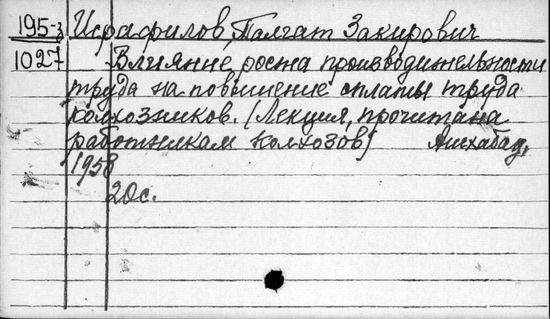 195-3 Исрафилов, Талгат Закирович
1027 Влияние роста производительности
труда на повышение оплаты труда
колхозников. (Лекция, прочитана
работникам колхозов) Ашхабад,
1958
20с.